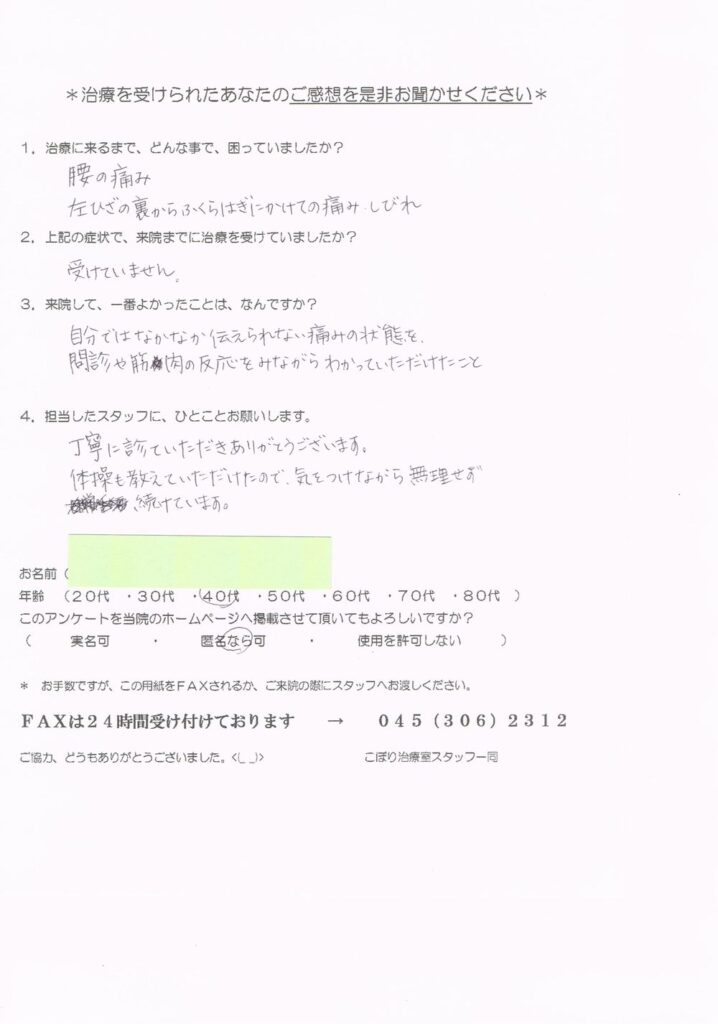 ＊治療を受けられたあなたのご感想を是非お聞かせください＊
１．治療に来るまで、どんな事で、困っていましたか？
腰の痛み
左ひざの裏からふくらはぎにかけての痛み しびれ
２．上記の症状で、来院までに治療を受けていましたか？
受けていません。
３．来院して、一番よかったことは、なんですか？
自分ではなかなか伝えられない痛みの状態を、
問診や筋肉の反応をみながらわかっていただけたこと
４．担当したスタッフに、ひとことお願いします。
丁寧に診ていただきありがとうございます。
体操も教えていただけたので、気をつけながら無理せず
続けています。
お名前（
年齢 （２０代 ・３０代 ・４０代 ・５０代 ・６０代 ・７０代 ・８０代 ）
このアンケートを当院のホームページへ掲載させて頂いてもよろしいですか？
（ 実名可 ・ 匿名なら可 ・ 使用を許可しない ）
＊ お手数ですが、この用紙をＦＡＸされるか、ご来院の際にスタッフへお渡しください。
ＦＡＸは２４時間受け付けております → ０４５（３０６）２３１２
ご協力、どうもありがとうございました。<(_ _)> こぼり治療室スタッフ一同